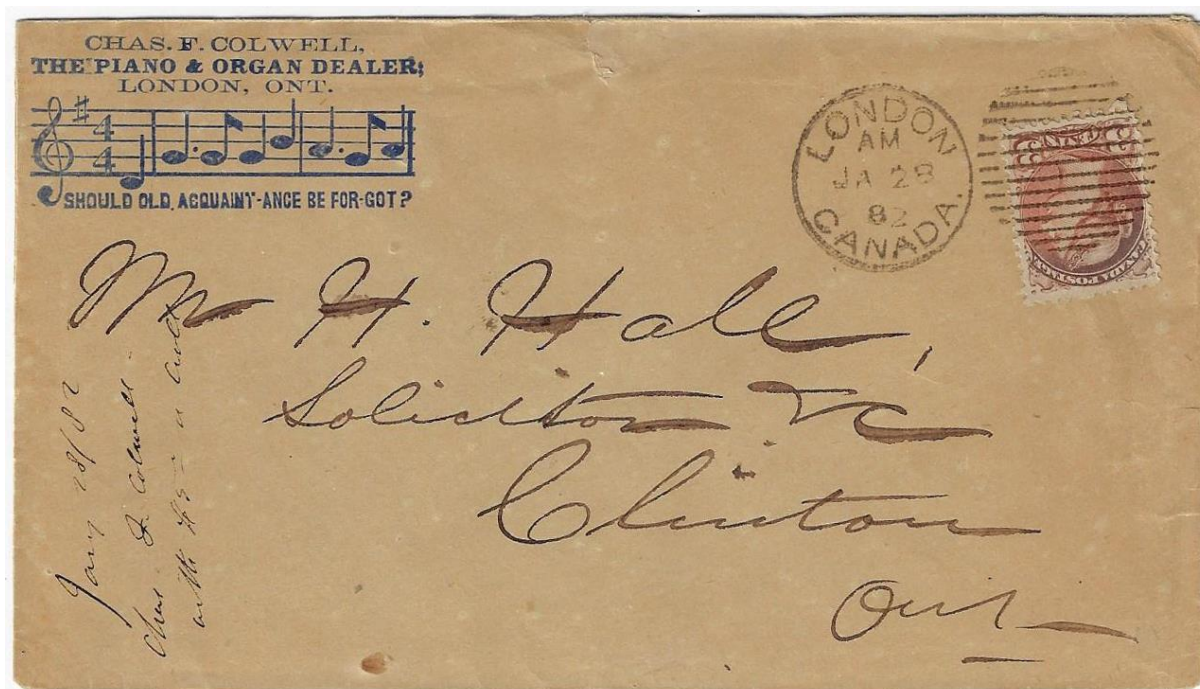 CHAS. F. COLWELL,
THE PIANO & ORGAN DEALER;
LONDON, ONT.
4
4
SHOULD OLD, ACQUAINT-ANCE BE FOR-GOT?
LONDON
AM
JA 28
82
CANADA.
3 CENTS 3
CANADA POSTAGE
Mr H. Hall,
Solicitor &c
Clinton
Ont
Jany 28/82
Chas F Colwell -
with